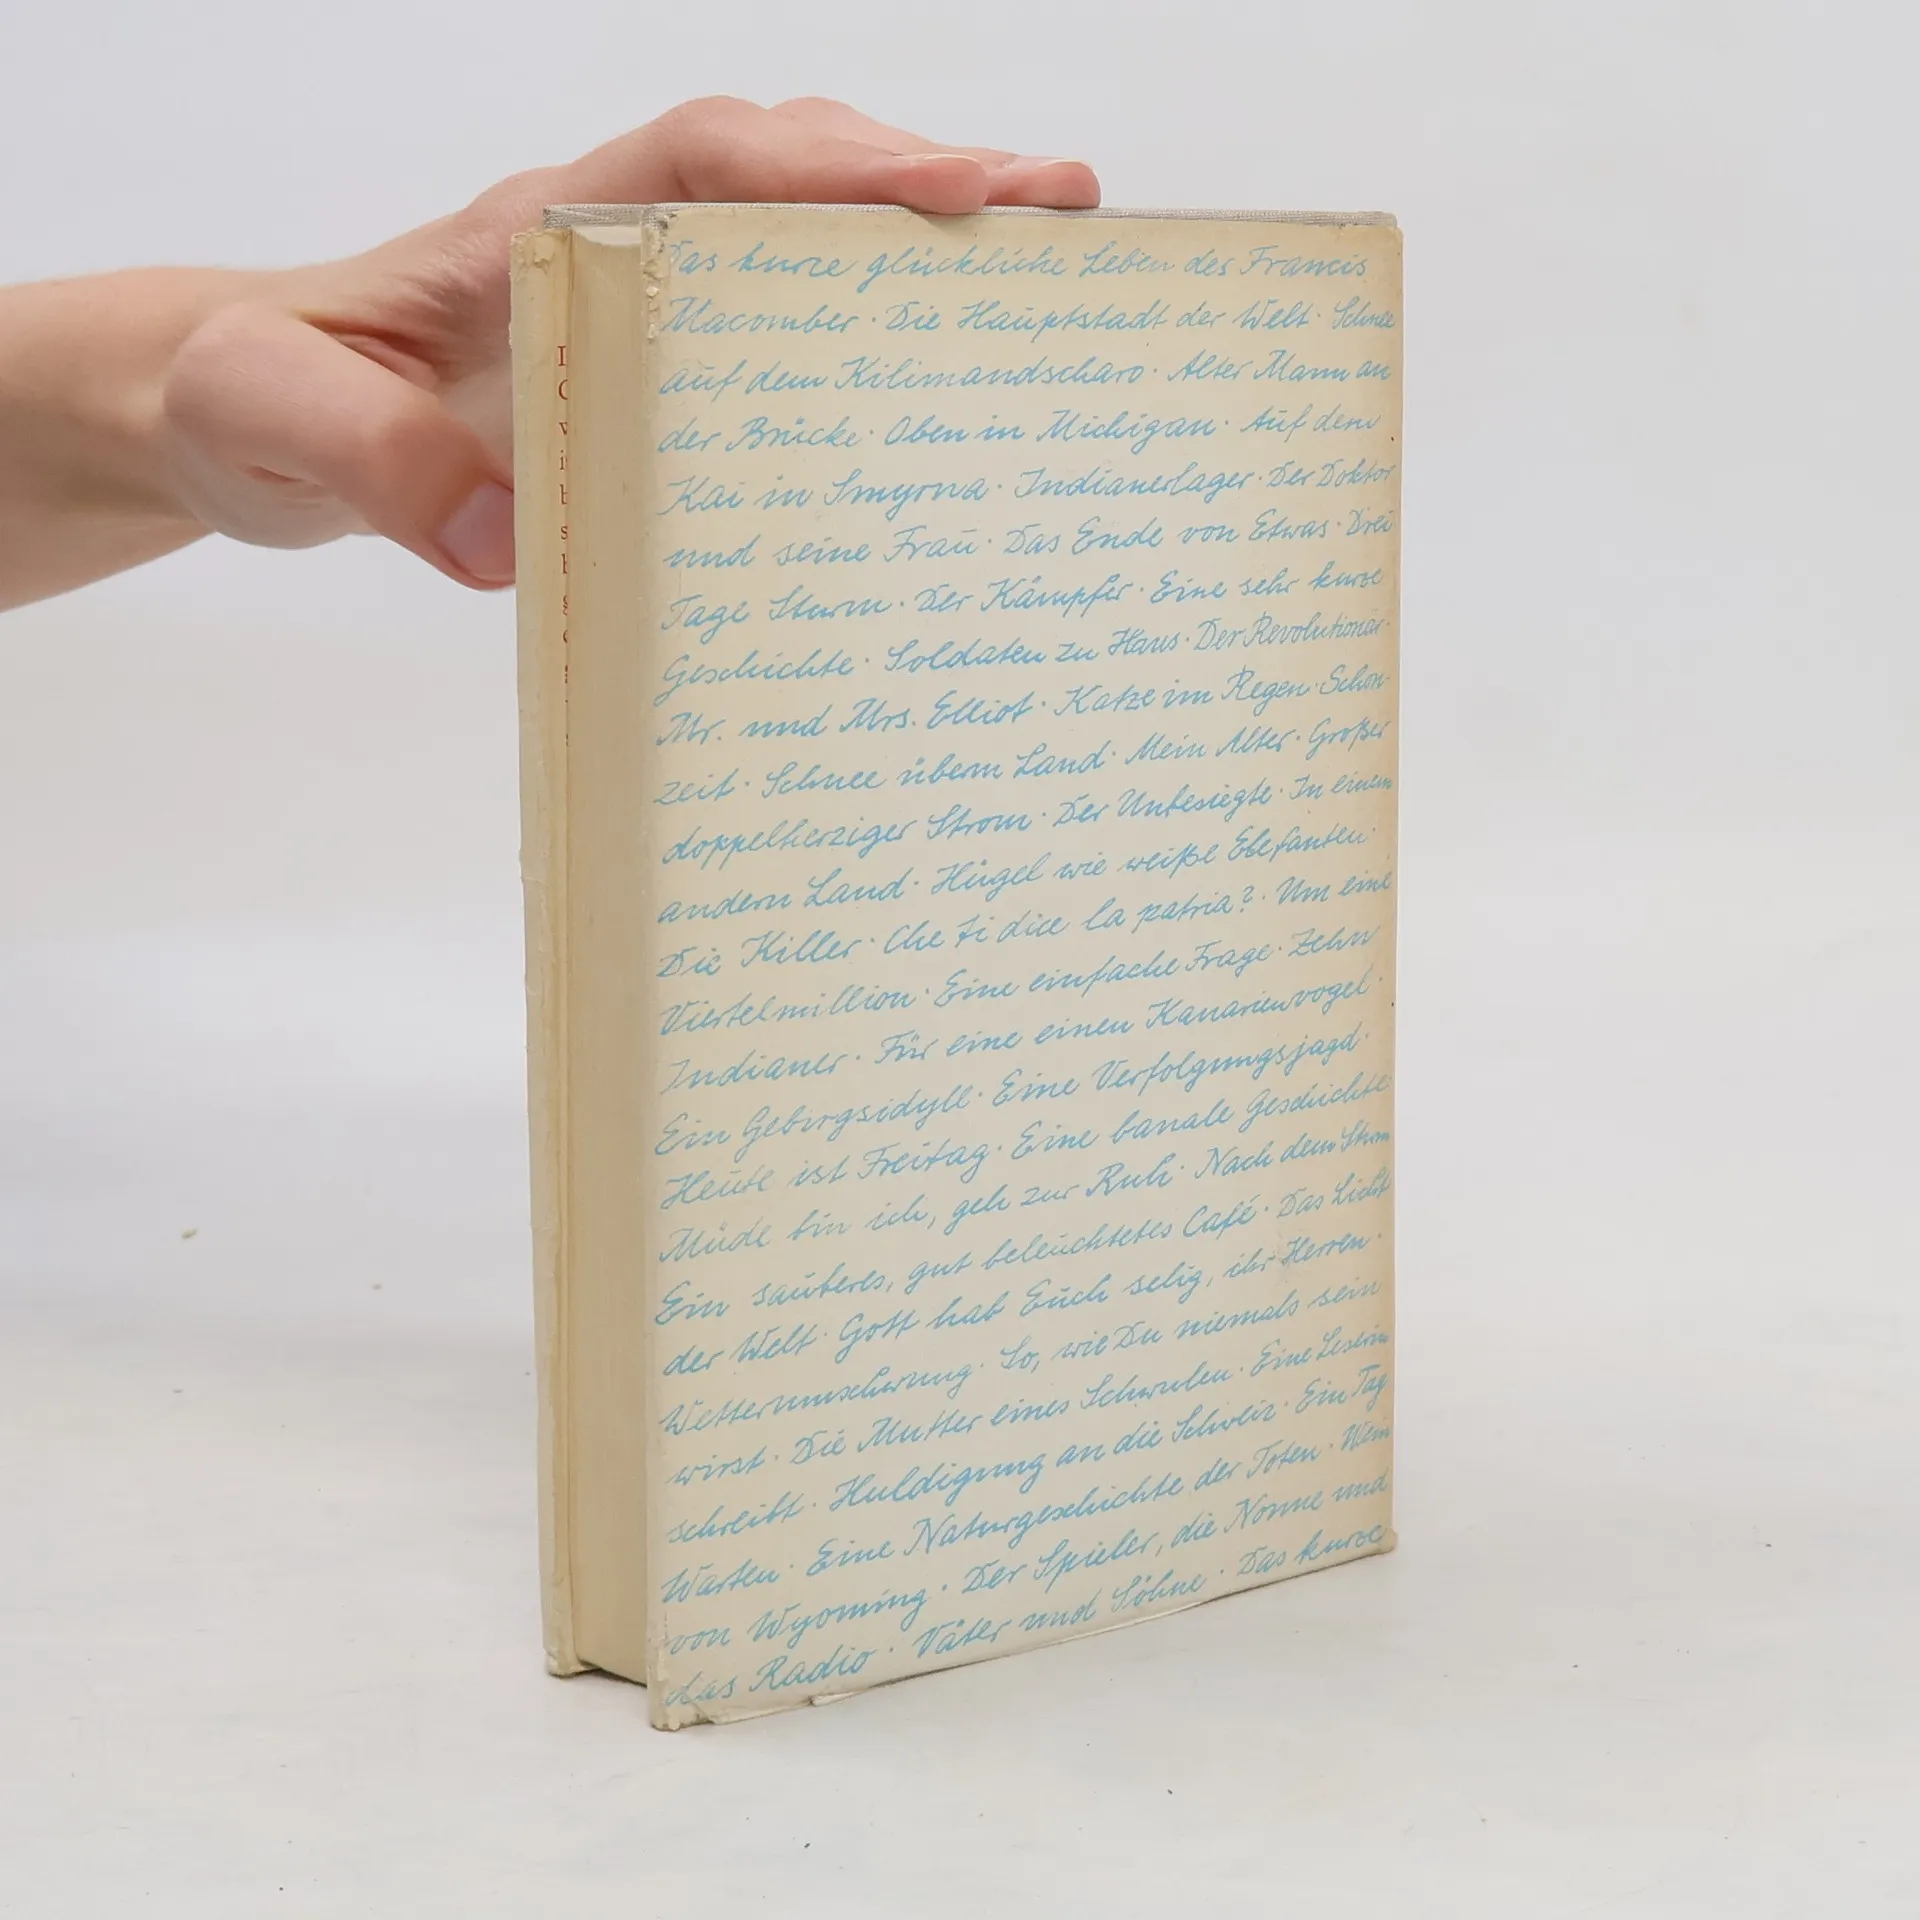 Das kurze glückliche Leben des Francis
Macomber · Die Hauptstadt der Welt · Schnee
auf dem Kilimandscharo · Alter Mann an
der Brücke · Oben in Michigan · Auf dem
Kai in Smyrna · Indianerlager · Der Doktor
und seine Frau · Das Ende von Etwas · Drei
Tage Sturm · Der Kämpfer · Eine sehr kurze
Geschichte · Soldaten zu Haus · Der Revolutionär ·
Mr. und Mrs. Elliot · Katze im Regen · Schon-
zeit · Schnee überm Land · Mein Alter · Großer
doppelherziger Strom · Der Unbesiegte · In einem
andern Land · Hügel wie weiße Elefanten ·
Die Killer · Che ti dice la patria? · Um eine
Viertelmillion · Eine einfache Frage · Zehn
Indianer · Für eine einen Kanarienvogel ·
Ein Gebirgsidyll · Eine Verfolgungsjagd ·
Heute ist Freitag · Eine banale Geschichte ·
Müde bin ich, geh zur Ruh · Nach dem Sturm
Ein sauberes, gut beleuchtetes Café · Das Licht
der Welt · Gott hab Euch selig, ihr Herren ·
Wetterumschwung · So, wie Du niemals sein
wirst · Die Mutter eines Schwulen · Eine Leserin
schreibt · Huldigung an die Schweiz · Ein Tag
Warten · Eine Naturgeschichte der Toten · Wein
von Wyoming · Der Spieler, die Nonne und
das Radio · Väter und Söhne · Das kurze